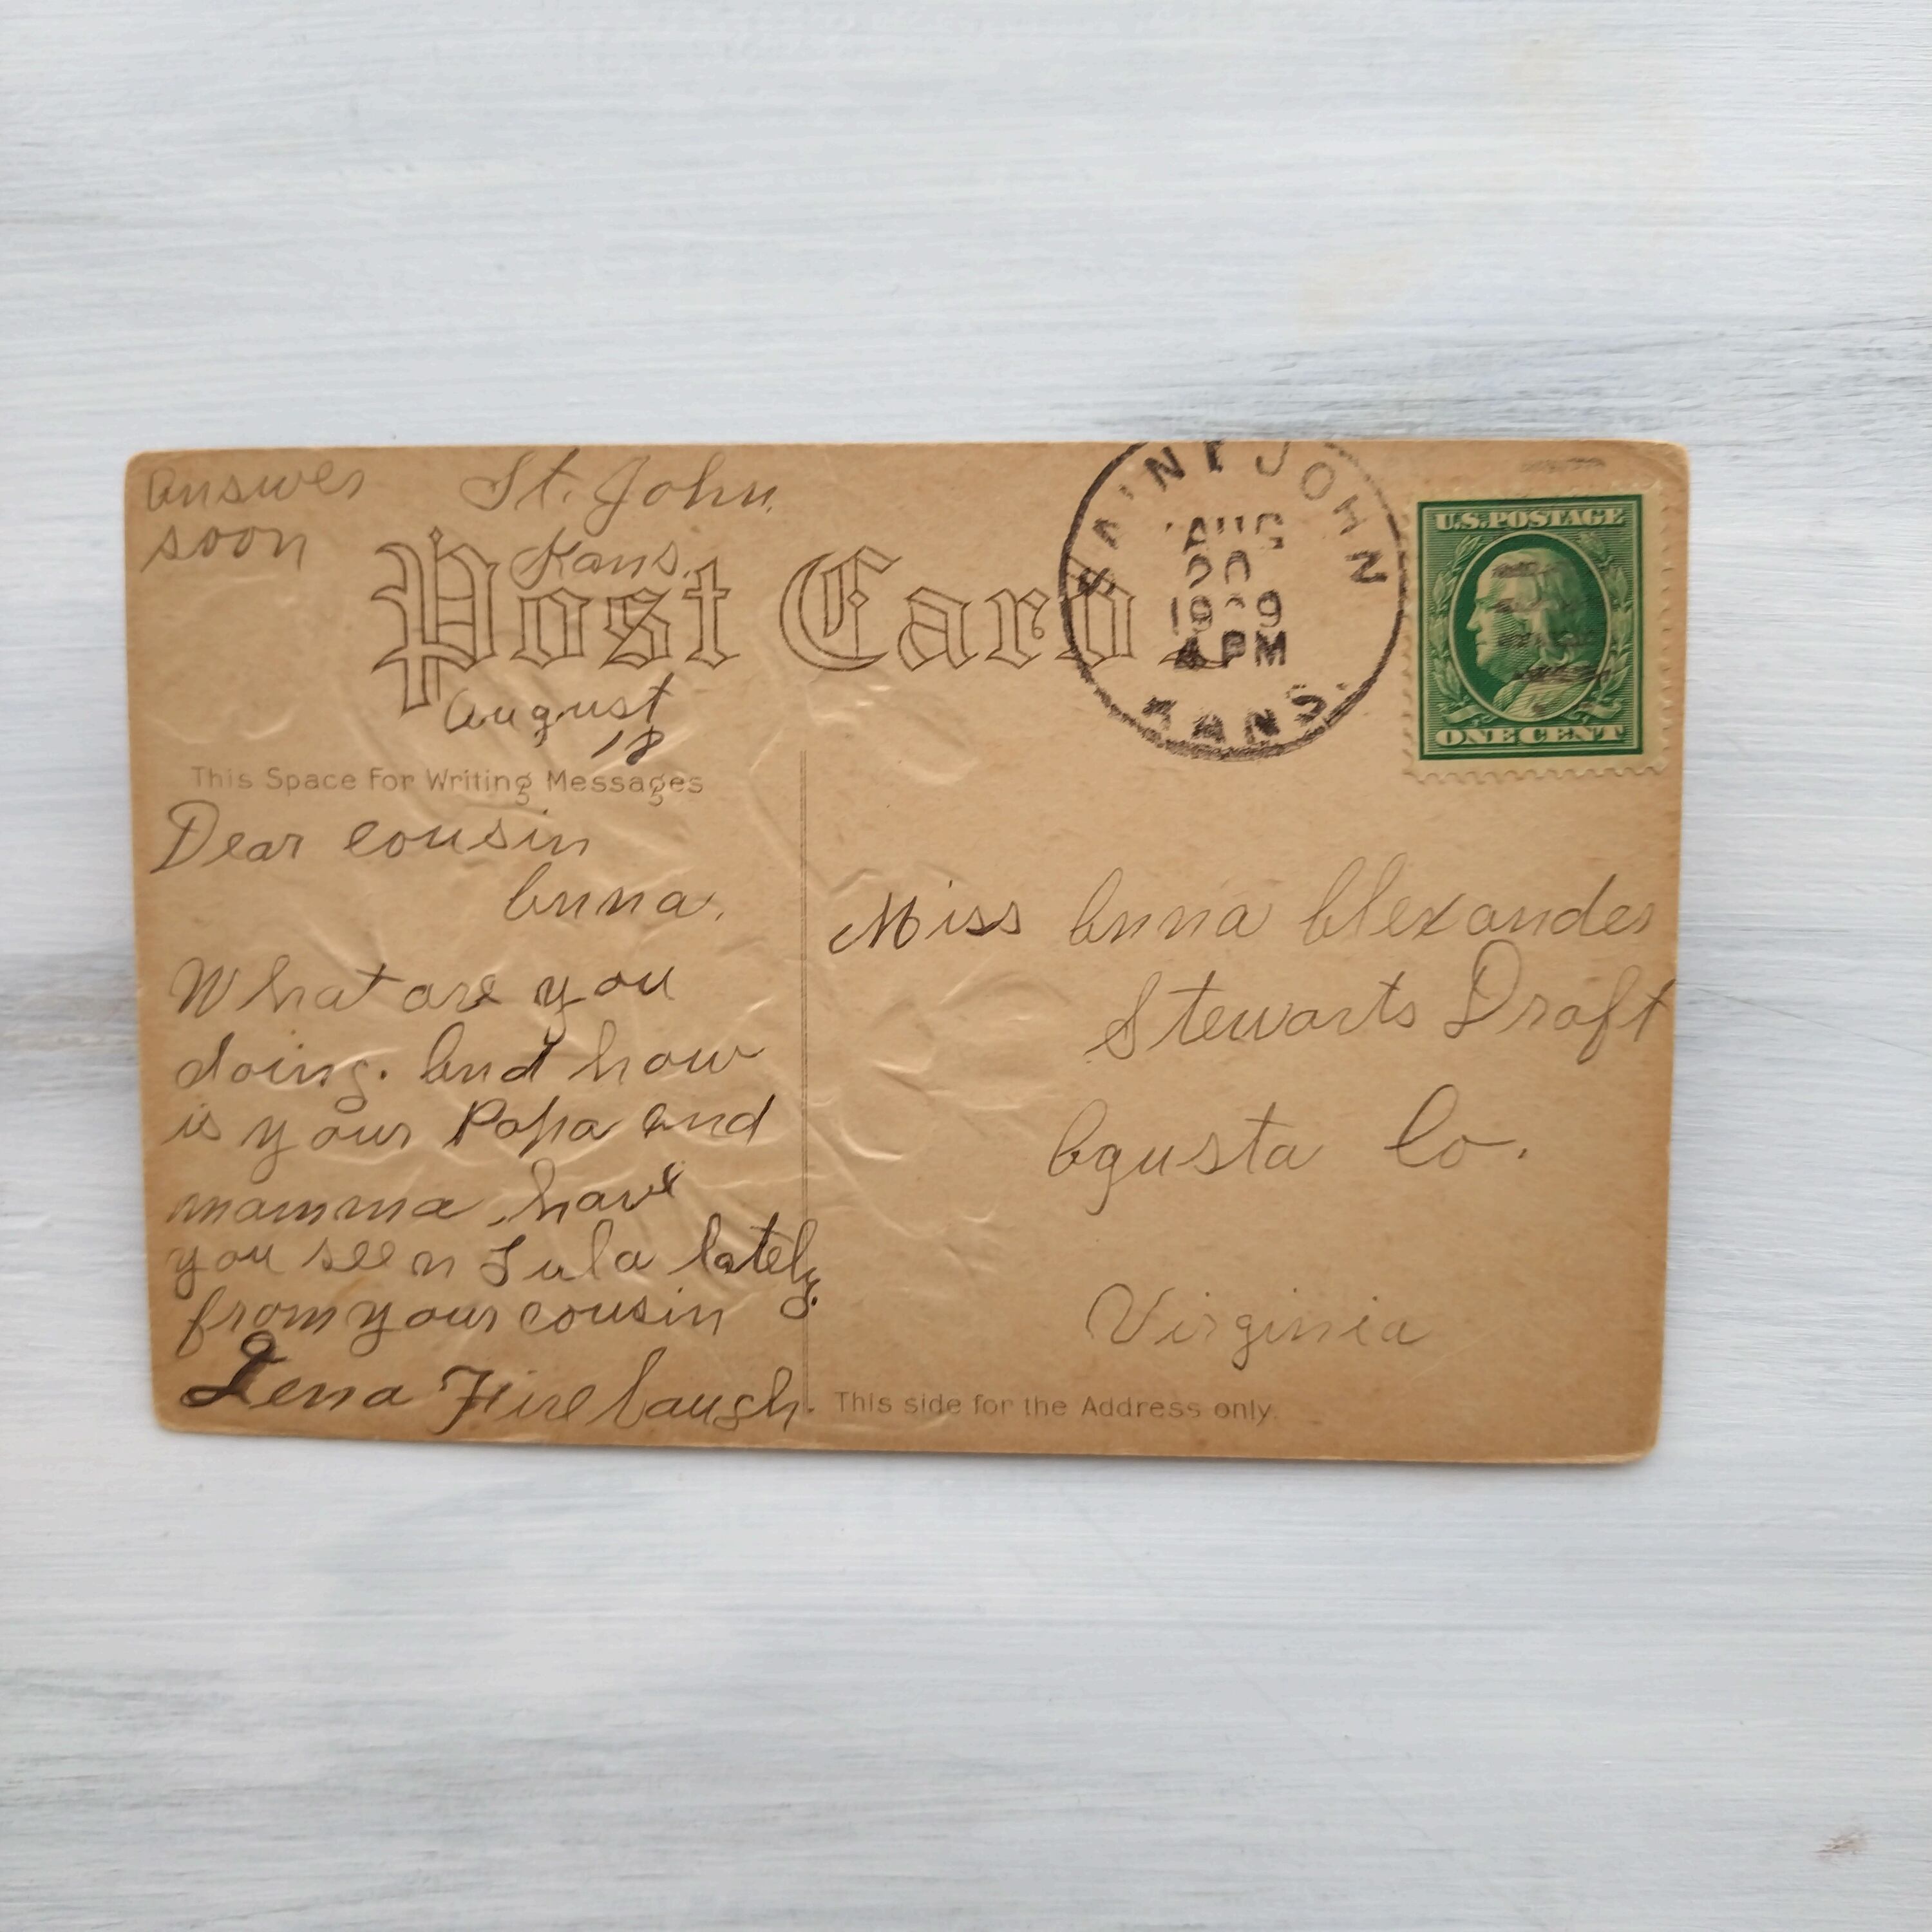 Answer
soon
St. John,
Kans.
Post Card
August
18
This Space For Writing Messages
Dear cousin
Anna,
What are you
doing. And how
is your Papa and
mamma, have
you seen Lula lately.
from your cousin
Lena Firebaugh.
SAINT JOHN
AUG
20
1909
4 PM
KANS.
U.S. POSTAGE
ONE CENT
Miss Anna Alexander
Stewarts Draft
Agusta Co.
Virginia
This side for the Address only.